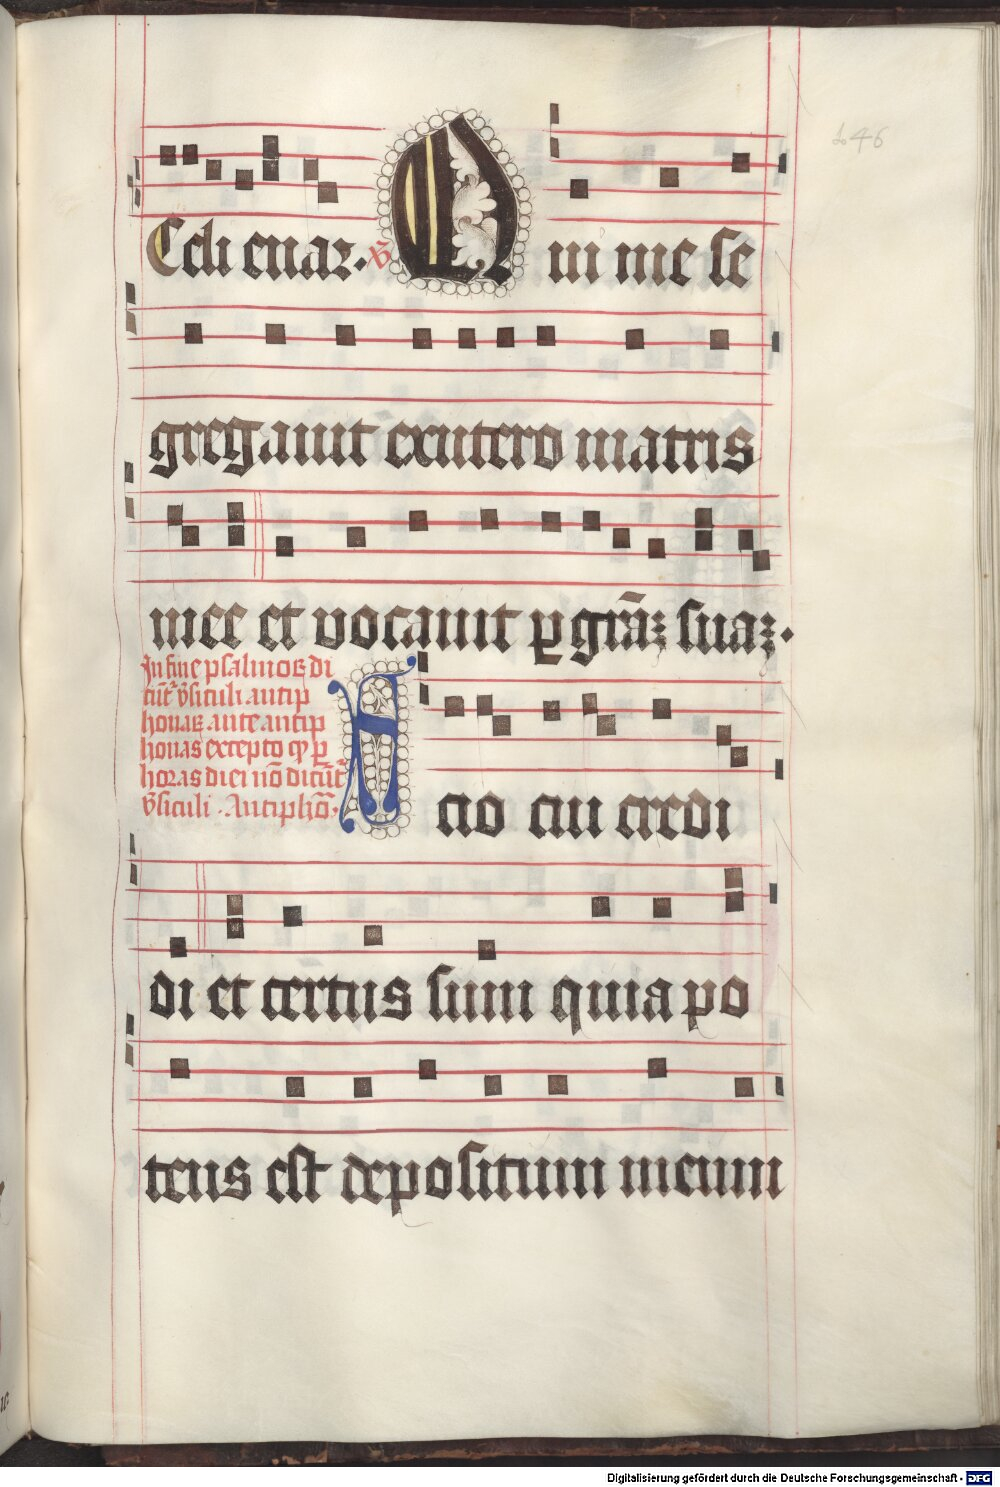 146
Celi enar. ꝟ Qui me se
gregauit exutero matris
mee et vocauit ꝑ gr̄aꝫ suaꝫ.
In fine psalmoꝝ di
cūt̉ v̄siculi antip
honaꝝ ante antip
honas excepto ꝙ ꝑ
horas diei nō dicūt̉
v̄siculi . Antiphō.
Scio cui credi
di et certus sum quia po
tens est depositum meum
Digitalisierung gefördert durch die Deutsche Forschungsgemeinschaft - DFG